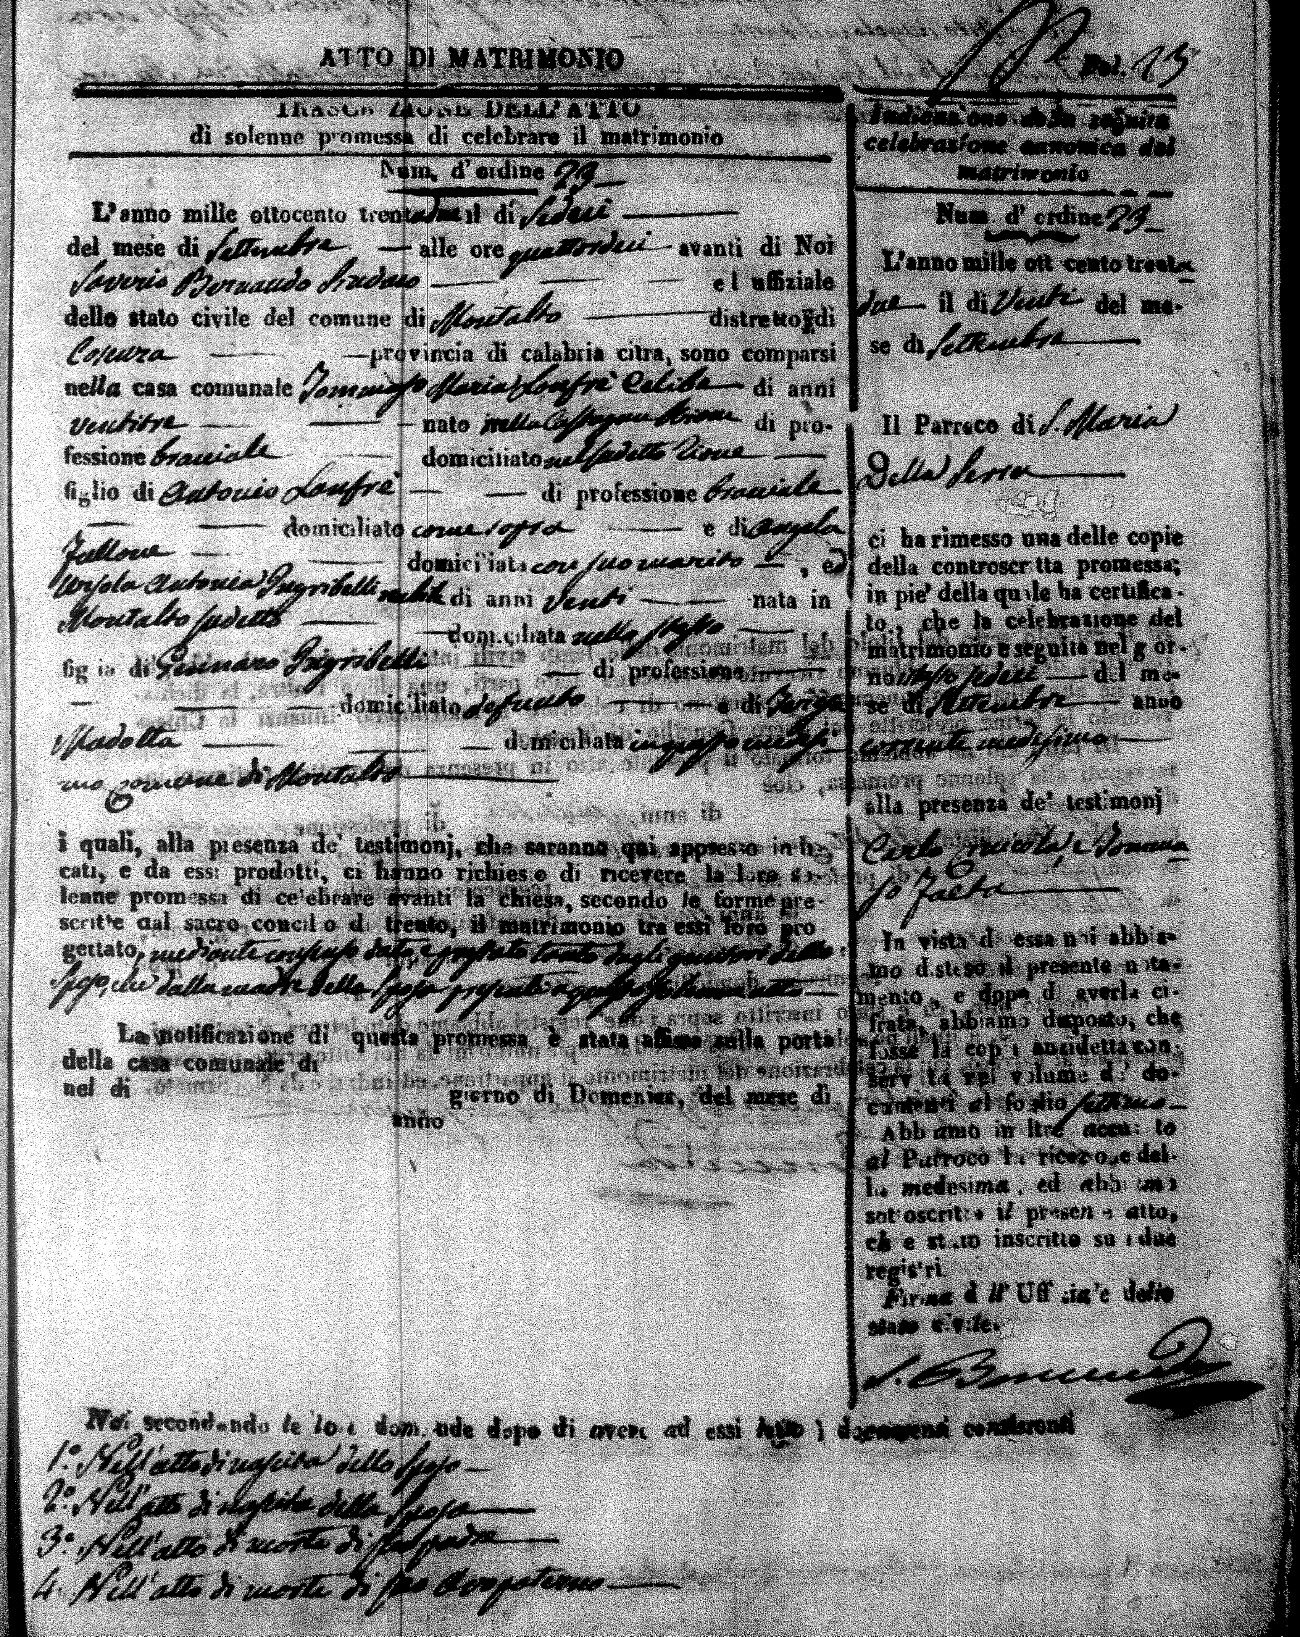 ATTO DI MATRIMONIO
Fol. 23
DELL' ATTO
di solenne promessa di celebrare il matrimonio
Num. d' ordine 23
L' anno mille ottocento trentadue il di Sedeci
del mese di Settembre alle ore quattordeci avanti di Noi
Saverio Bernaudo Sindaco ed uffiziale
dello stato civile del comune di Montalto distretto di
Cosenza provincia di calabria citra, sono comparsi
nella casa comunale Tommaso Maria Lonfrè Celibe di anni
ventitre nato nella di pro-
fessione bracciale domiciliato nel sudetto Rione
figlio di Antonio Lonfrè di professione bracciale
domiciliato come sopra e di Angela
Fullone domiciliata con suo marito, ed
Ursola Antonia Ingribelli nubile di anni venti nata in
Montalto sudetto domiciliata nello stesso
figlia di Gennaro Ingribelli di professione
domiciliato defunto e di Teresa
Madotta domiciliata in questo medesi-
mo comune di Montalto
i quali, alla presenza de' testimonj, che saranno qui appresso indi-
cati, e da essi prodotti, ci hanno richiesto di ricevere la loro so-
lenne promessa di celebrare avanti la chiesa, secondo le forme pre-
scritte dal sacro concilio di trento, il matrimonio tra essi loro pro
gettato, mediante consenso dato, e prestato tanto dagli genitori dello
Sposo, che dalla madre della Sposa presenti a questo atto
La notificazione di questa promessa è stata affissa sulla porta
della casa comunale di
nel di giorno di Domenica, del mese di
anno
Indicazione della seguita
celebrazione canonica del
matrimonio
Num. d' ordine 23
L' anno mille ottocento trenta
due il di Venti del me-
se di Settembre
Il Parroco di S. Maria
Della Serra
ci ha rimesso una delle copie
della controscritta promessa;
in pie' della quale ha certifica-
to, che la celebrazione del
matrimonio è seguita nel gior-
no sedeci del me-
se di Settembre anno
corrente medesimo
alla presenza de' testimonj
Carlo e Tomma
so Faeta
In vista di essa noi abbia-
mo disteso il presente nota-
mento, e dopo di averla ci-
frata, abbiamo disposto, che
fosse la copia anzidetta con-
servata nel volume de' do-
cumenti al foglio settimo
Abbiamo inoltre accusato
al Parroco la ricezione del-
la medesima, ed abbiamo
sottoscritto il presente atto,
ch' e stato inscritto su i due
registri
Firma dell' Uffiziale dello
stato civile.
S. Bernaudo
Noi secondando le loro domande dopo di avere ad essi letto i documenti consistenti
1.° Nell' atto di nascita dello Sposo
2.° Nell' atto di nascita della Sposa
3.° Nell' atto di morte di suo padre
4. Nell' atto di morte di suo Avo paterno